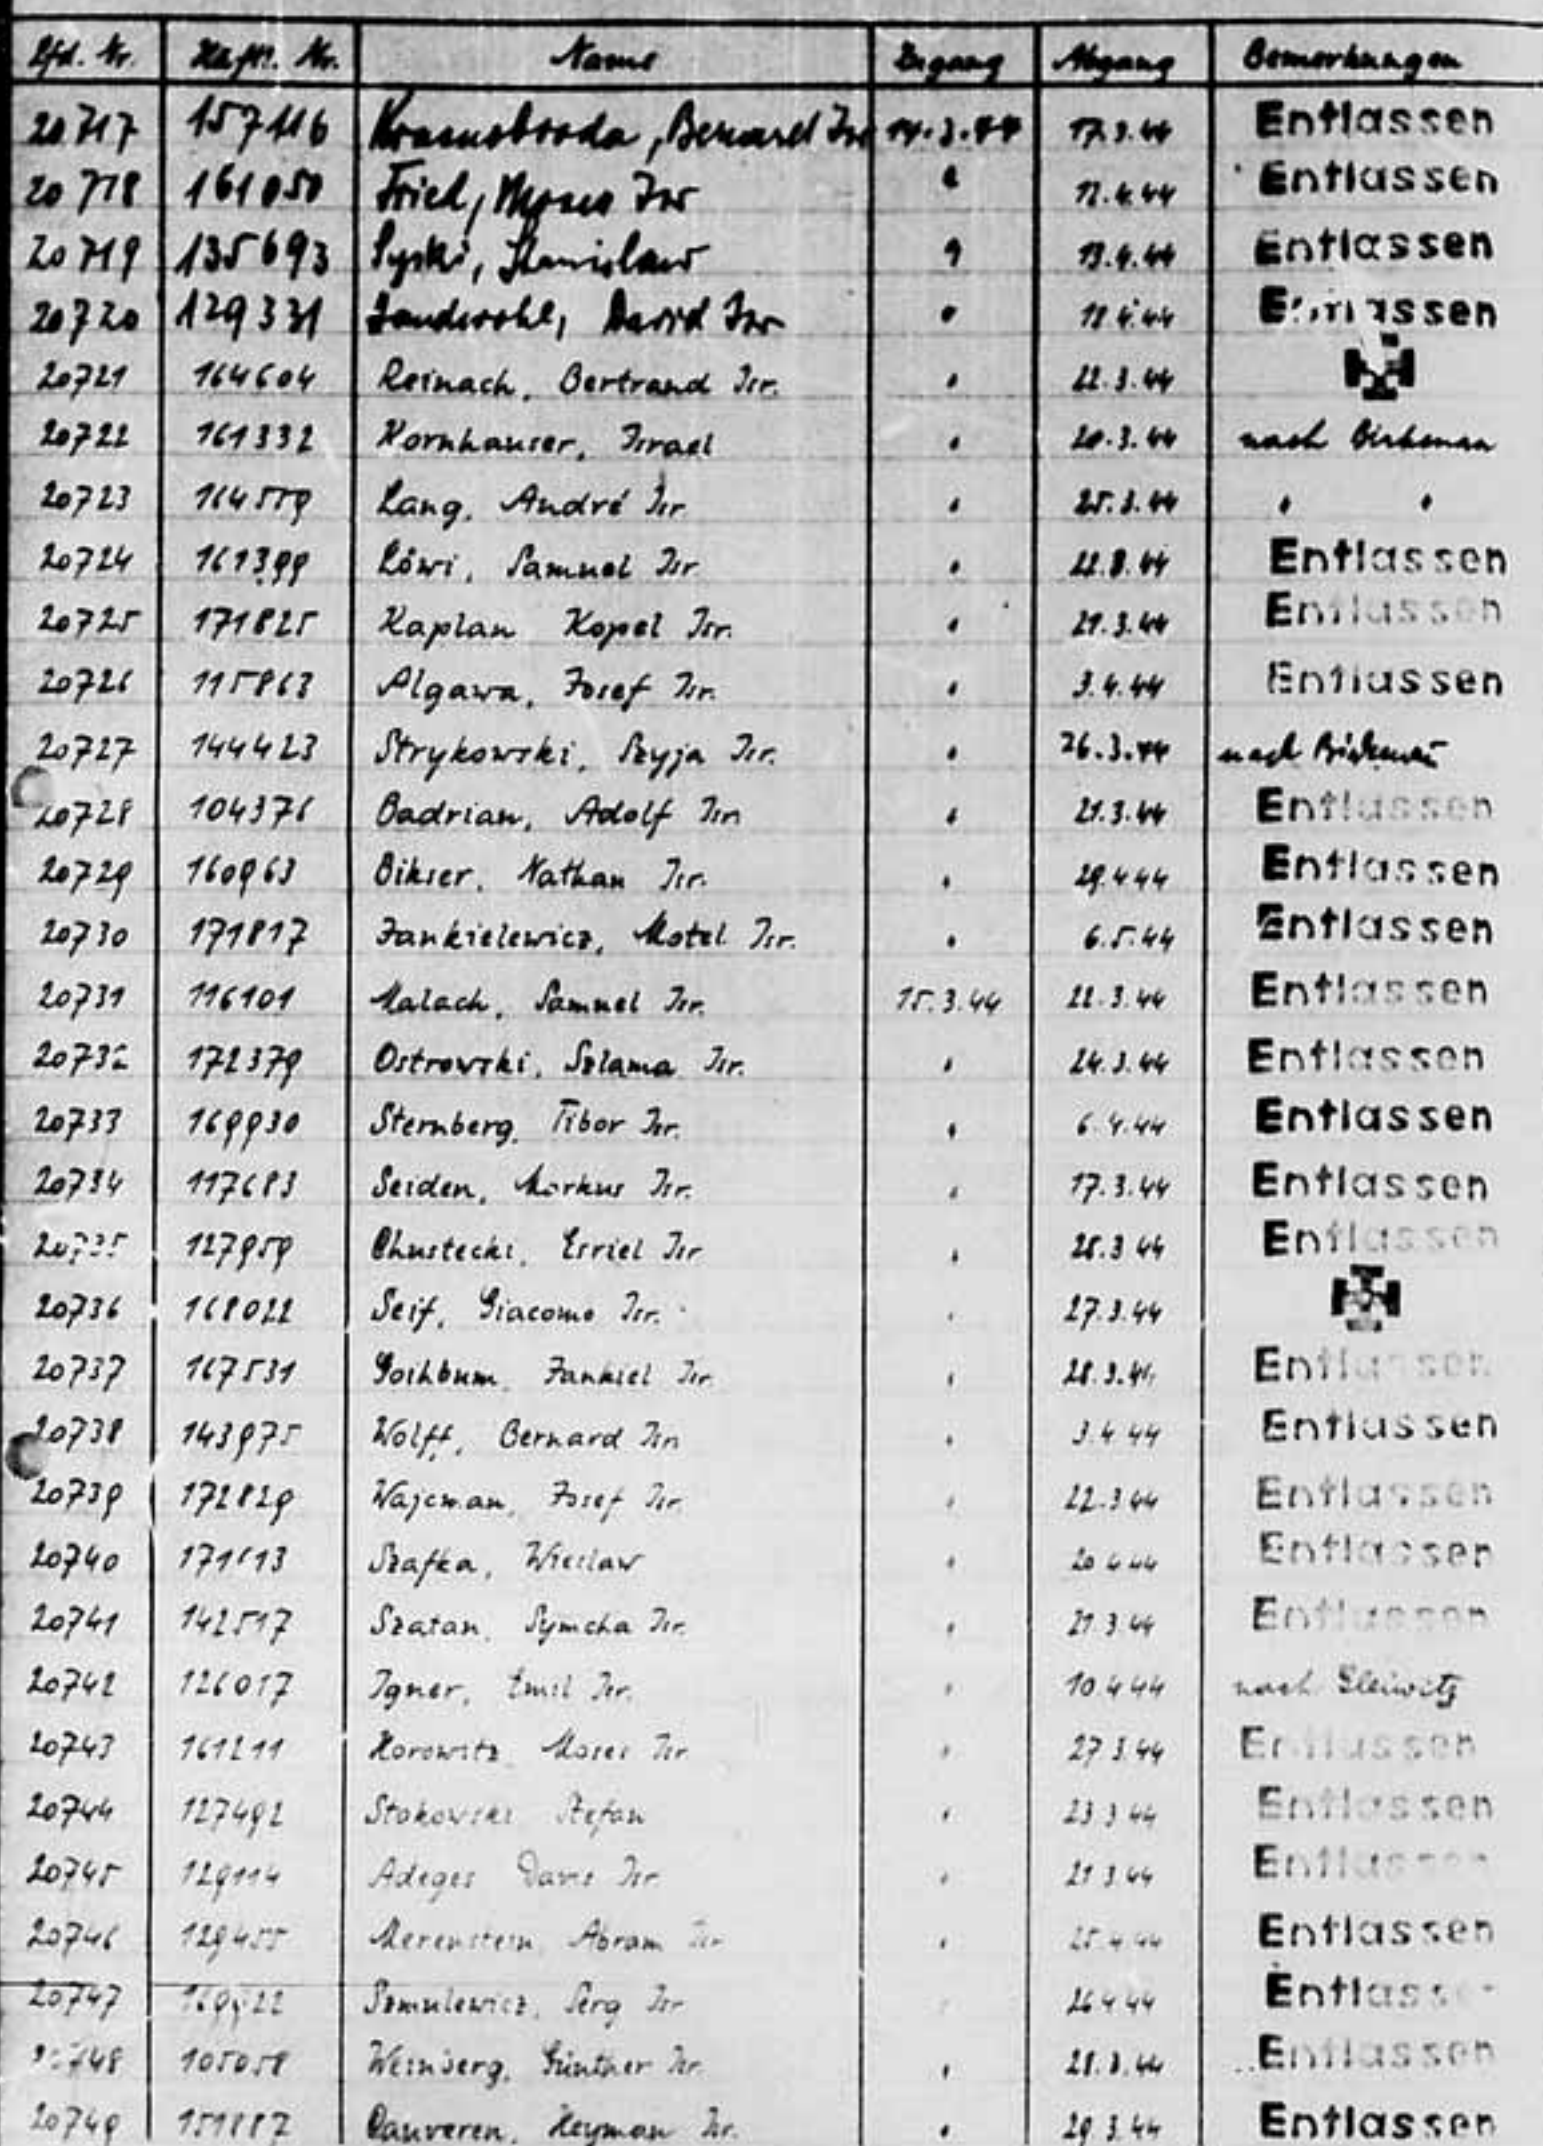 Lfd. Nr. Häftl. Nr. Name Zugang Abgang Bemerkungen
20717 157116 Krasnobroda, Bernard Isr 14.3.44 17.3.44 Entlassen
20718 161050 Fried, Moses Isr " Entlassen
20719 135693 Syski, Stanislaw " 13.4.44 Entlassen
20720 129331 David Isr " 18.4.44 Entlassen
20721 164604 Reinach, Bertrand Isr. " 22.3.44
20722 161332 Kornhauser, Israel " 20.3.44 nach Birkenau
20723 164559 Lang, André Isr. " 25.3.44 " "
20724 161399 Löwi, Samuel Isr. " Entlassen
20725 171825 Kaplan Kopel Isr. " 21.3.44 Entlassen
20726 115863 Algawa, Josef Isr. " 3.4.44 Entlassen
20727 144423 Strykowski, Szyja Isr. " 26.3.44 nach Birkenau
20728 104376 Badrian, Adolf Isr. " 21.3.44 Entlassen
20729 160963 Bikser, Nathan Isr. " 29.4.44 Entlassen
20730 171817 Jankielewicz, Motel Isr. " 6.5.44 Entlassen
20731 116101 Malach, Samuel Isr. 15.3.44 22.3.44 Entlassen
20732 172379 Ostrowski, Szlama Isr. " 24.3.44 Entlassen
20733 169930 Sternberg, Tibor Isr. " 6.4.44 Entlassen
20734 117683 Seiden, Markus Isr. " 17.3.44 Entlassen
20735 127959 Chustecki, Esriel Isr. " Entlassen
20736 168022 Seif, Giacomo Isr. " 27.3.44
20737 167531 Goihbum, Jankiel Isr. " 28.3.44 Entlassen
20738 143975 Wolff, Bernard Isr. " 3.4.44 Entlassen
20739 172829 Wajcman, Josef Isr. " 22.3.44 Entlassen
20740 171613 Szafka, Wieslaw " 20.4.44 Entlassen
20741 142517 Szatan, Symcha Isr. " 21.3.44 Entlassen
20742 126017 Igner, Emil Isr. " 10.4.44 nach Gleiwitz
20743 161211 Horowitz, Moses Isr. " 27.3.44 Entlassen
20744 127492 Stokowski Stefan " 23.3.44 Entlassen
20745 129114 Adeges Isr. " 21.3.44 Entlassen
20746 129455 Merenstein, Abram Isr. " 25.4.44 Entlassen
20747 Szmulewicz, Serg Isr. 26.4.44 Entlassen
20748 105058 Weinberg, Günther Isr. " 28.3.44 Entlassen
20749 151887 Canveren, Heyman Isr. " 29.3.44 Entlassen